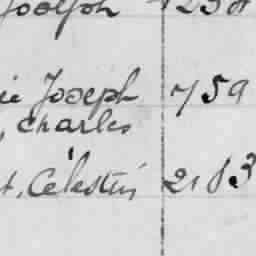 Joseph 1238
ie Joseph 759
, Charles
t, Célestin 2183